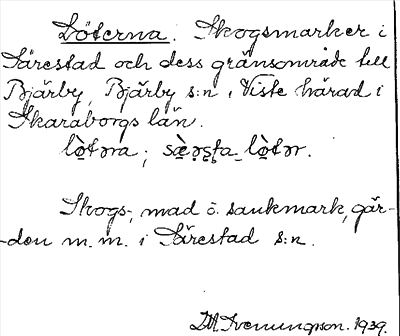 Löterna. Skogsmarker i
Särestad och dess gränsområde till
Bjärby, Bjärby s:n, Viste härad i
Skaraborgs län.
lò̤təna; sæ̀rsta lò̤tər.
Skogs-, mad o. sankmark, går-
-den m.m. i Särestad s:n.
Iveningson. 1939.